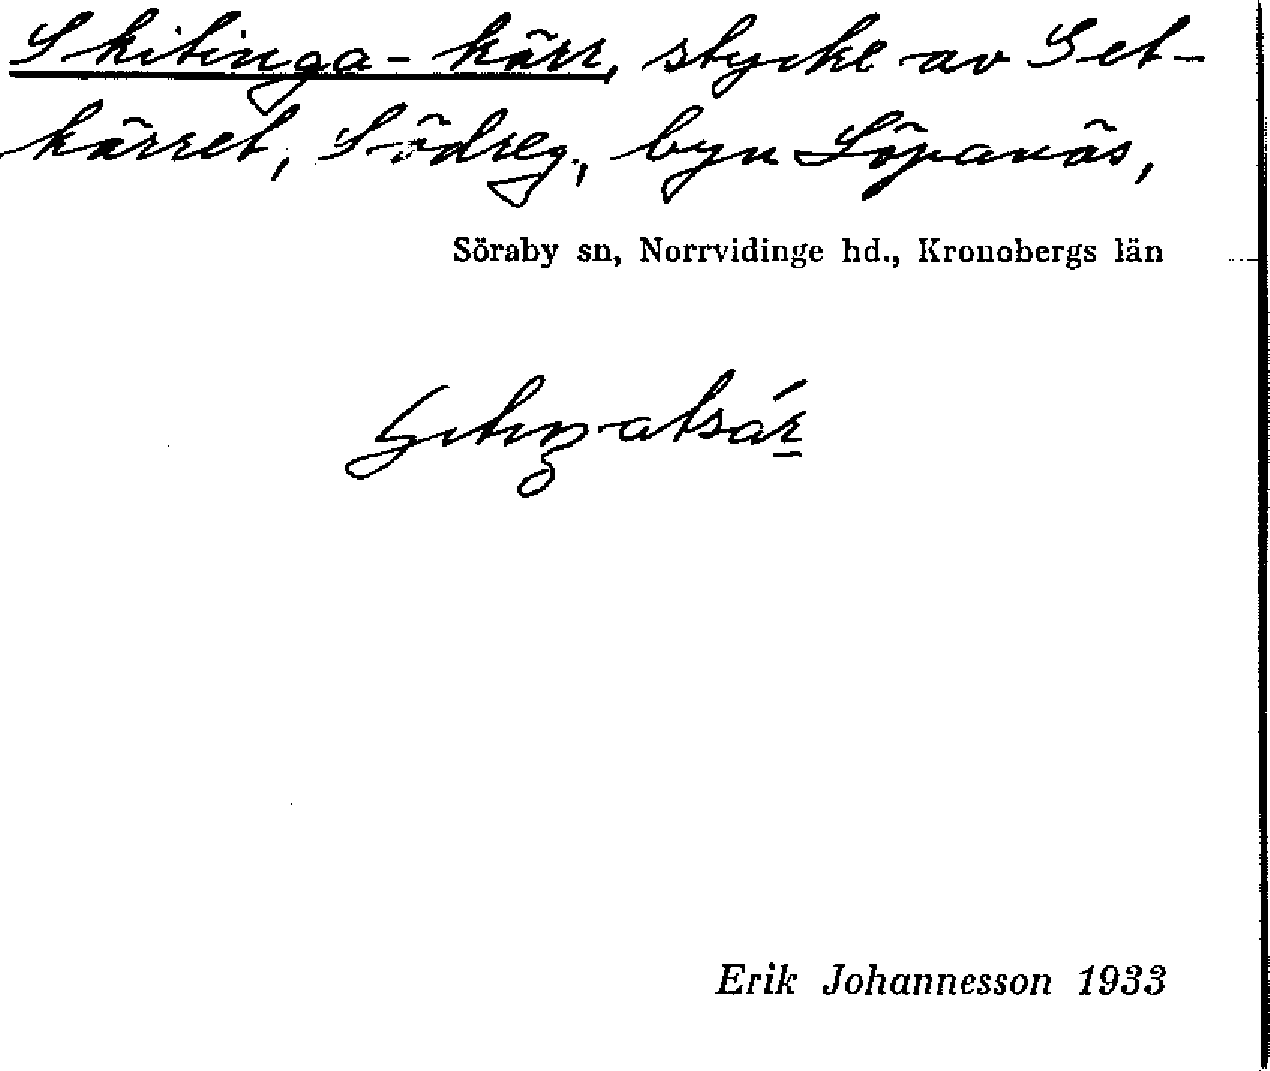 Skitinga-kärr, stycke av Get-
kärret, Södreg., byn Löpanäs,
Söraby sn, Norrvidinge hd., Kronobergs län
Erik Johannesson 1933